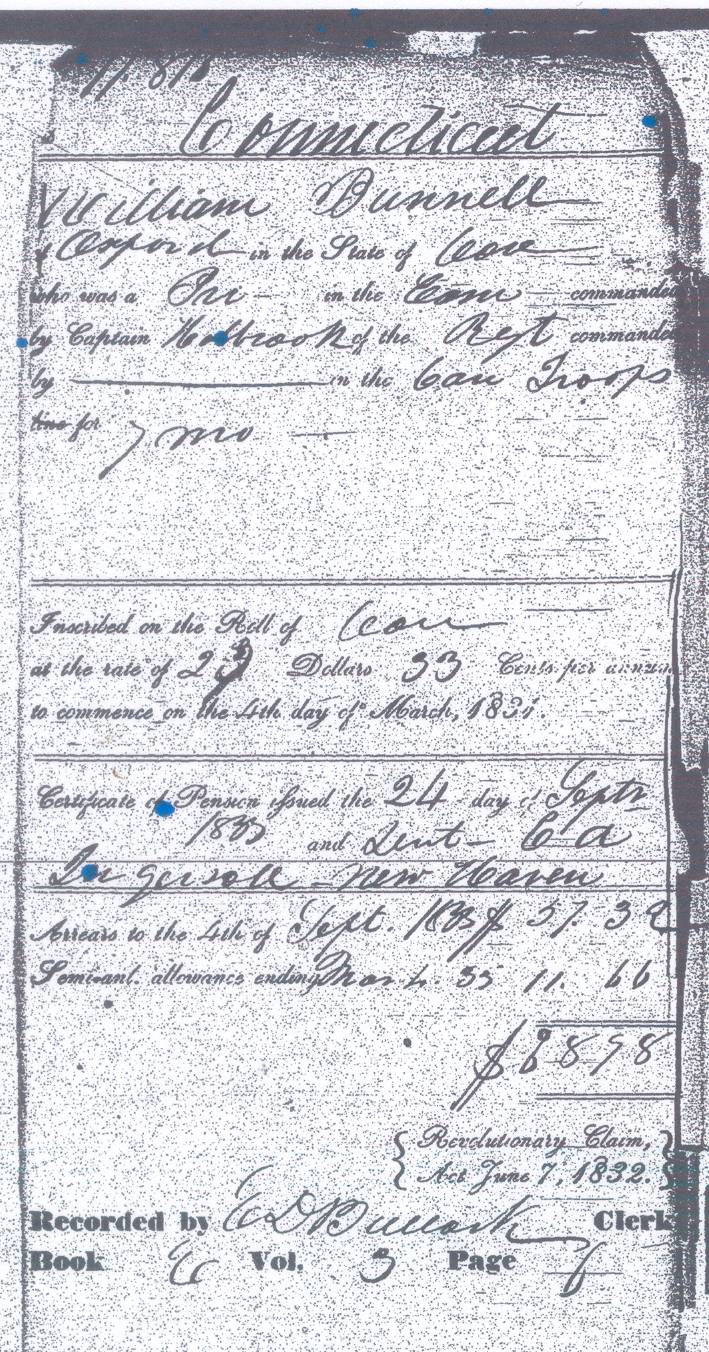 Connecticut
William Bunnell
of Oxford in the State of Con
who was a Pri in the Com commanded
by Captain Holbrook of the Regt commanded
by in the Con Troops
line for 7 mo
Inscribed on the Roll of Con
at the rate of 23 Dollars 33 Cents per annum
to commence on the 4th day of March, 1831.
Certificate of Pension issued the 24 day of Septr
1833 and Sent C A
Ingersoll - New Haven
Arrears to the 4th of Sept. 1833 $ 57. 32
Semi-anl. allowance ending Mar 4. 11. 66
$ 6898
Revolutionary Claim,
Act June 7, 1832.
Recorded by Clerk
Book E Vol. Page